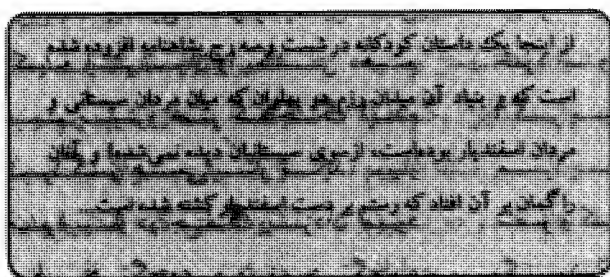 از اینجا یک داستان کودکانه در شست و سه رج بشاهنامه افزوده شده
است که بر بنیاد آن میدان رزم دو پهلوان که میان مردان سیستانی و
مردان اسفندیار بوده‌است، از سوی سیستانیان دیده نمی‌شده! و آنان
را گمان بر آن افتاد که رستم بر دست اسفندیار کشته شده است.